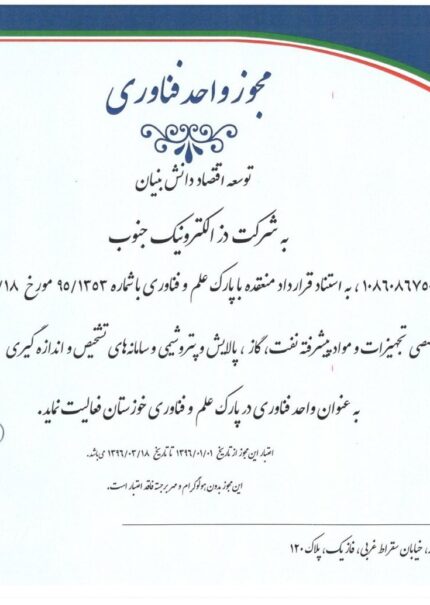 مجوز واحد فناوری
توسعه اقتصاد دانش بنیان
به شرکت دز الکترونیک جنوب
۱۰۸۶۰۸۶۷۵، به استناد قرارداد منعقده با پارک علم و فناوری با شماره ۹۵/۱۳۵۳ مورخ ۱۸/
تجهیزات و مواد پیشرفته نفت، گاز، پالایش و پتروشیمی و سامانه‌های تشخیص و اندازه گیری
به عنوان واحد فناوری در پارک علم و فناوری خوزستان فعالیت نماید.
اعتبار این مجوز از تاریخ ۱۳۹۶/۰۱/۰۱ تا تاریخ ۱۳۹۶/۰۳/۱۸ می‌باشد.
این مجوز بدون هولوگرام و مهر برجسته فاقد اعتبار است.
خیابان سقراط غربی، فاز یک، پلاک ۱۲۰